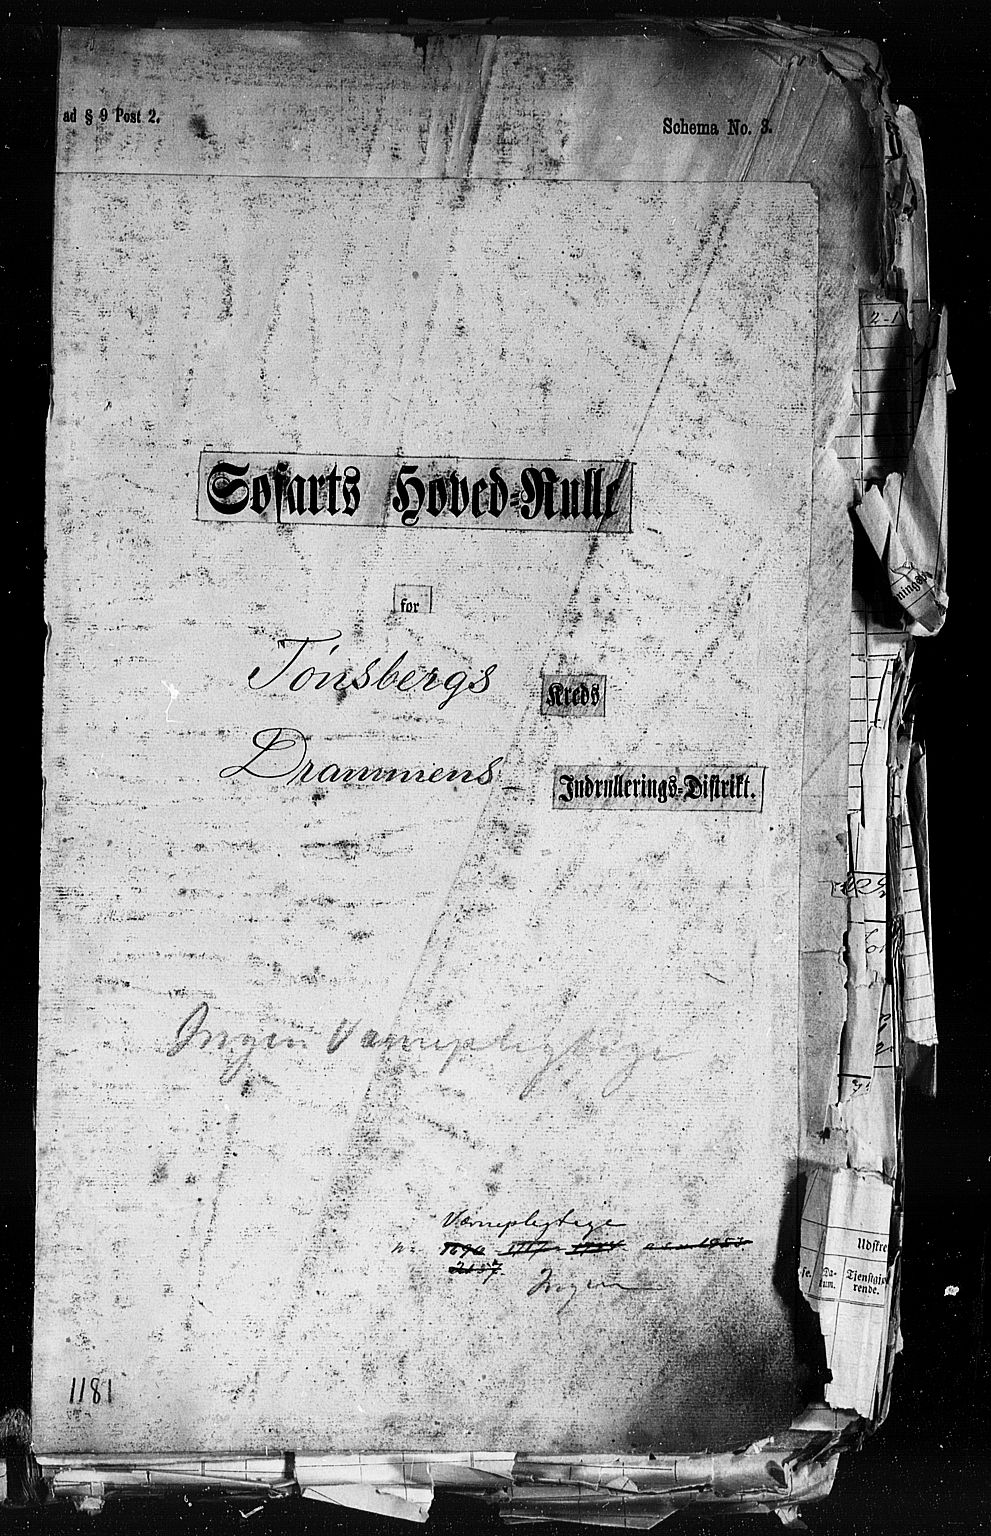 ad § 9 Post 2.
Schema No. 3.
2-1
Søfarts Hoved-Rulle
for
Tønsbergs Kreds
Drammens Indrullerings-Distrikt.
Ingen Værnepligtige
Værnepligtige
1690 1717
2157.
Ingen
Udstre
Da-
tum.
Tjenstgjø
rende.
1181